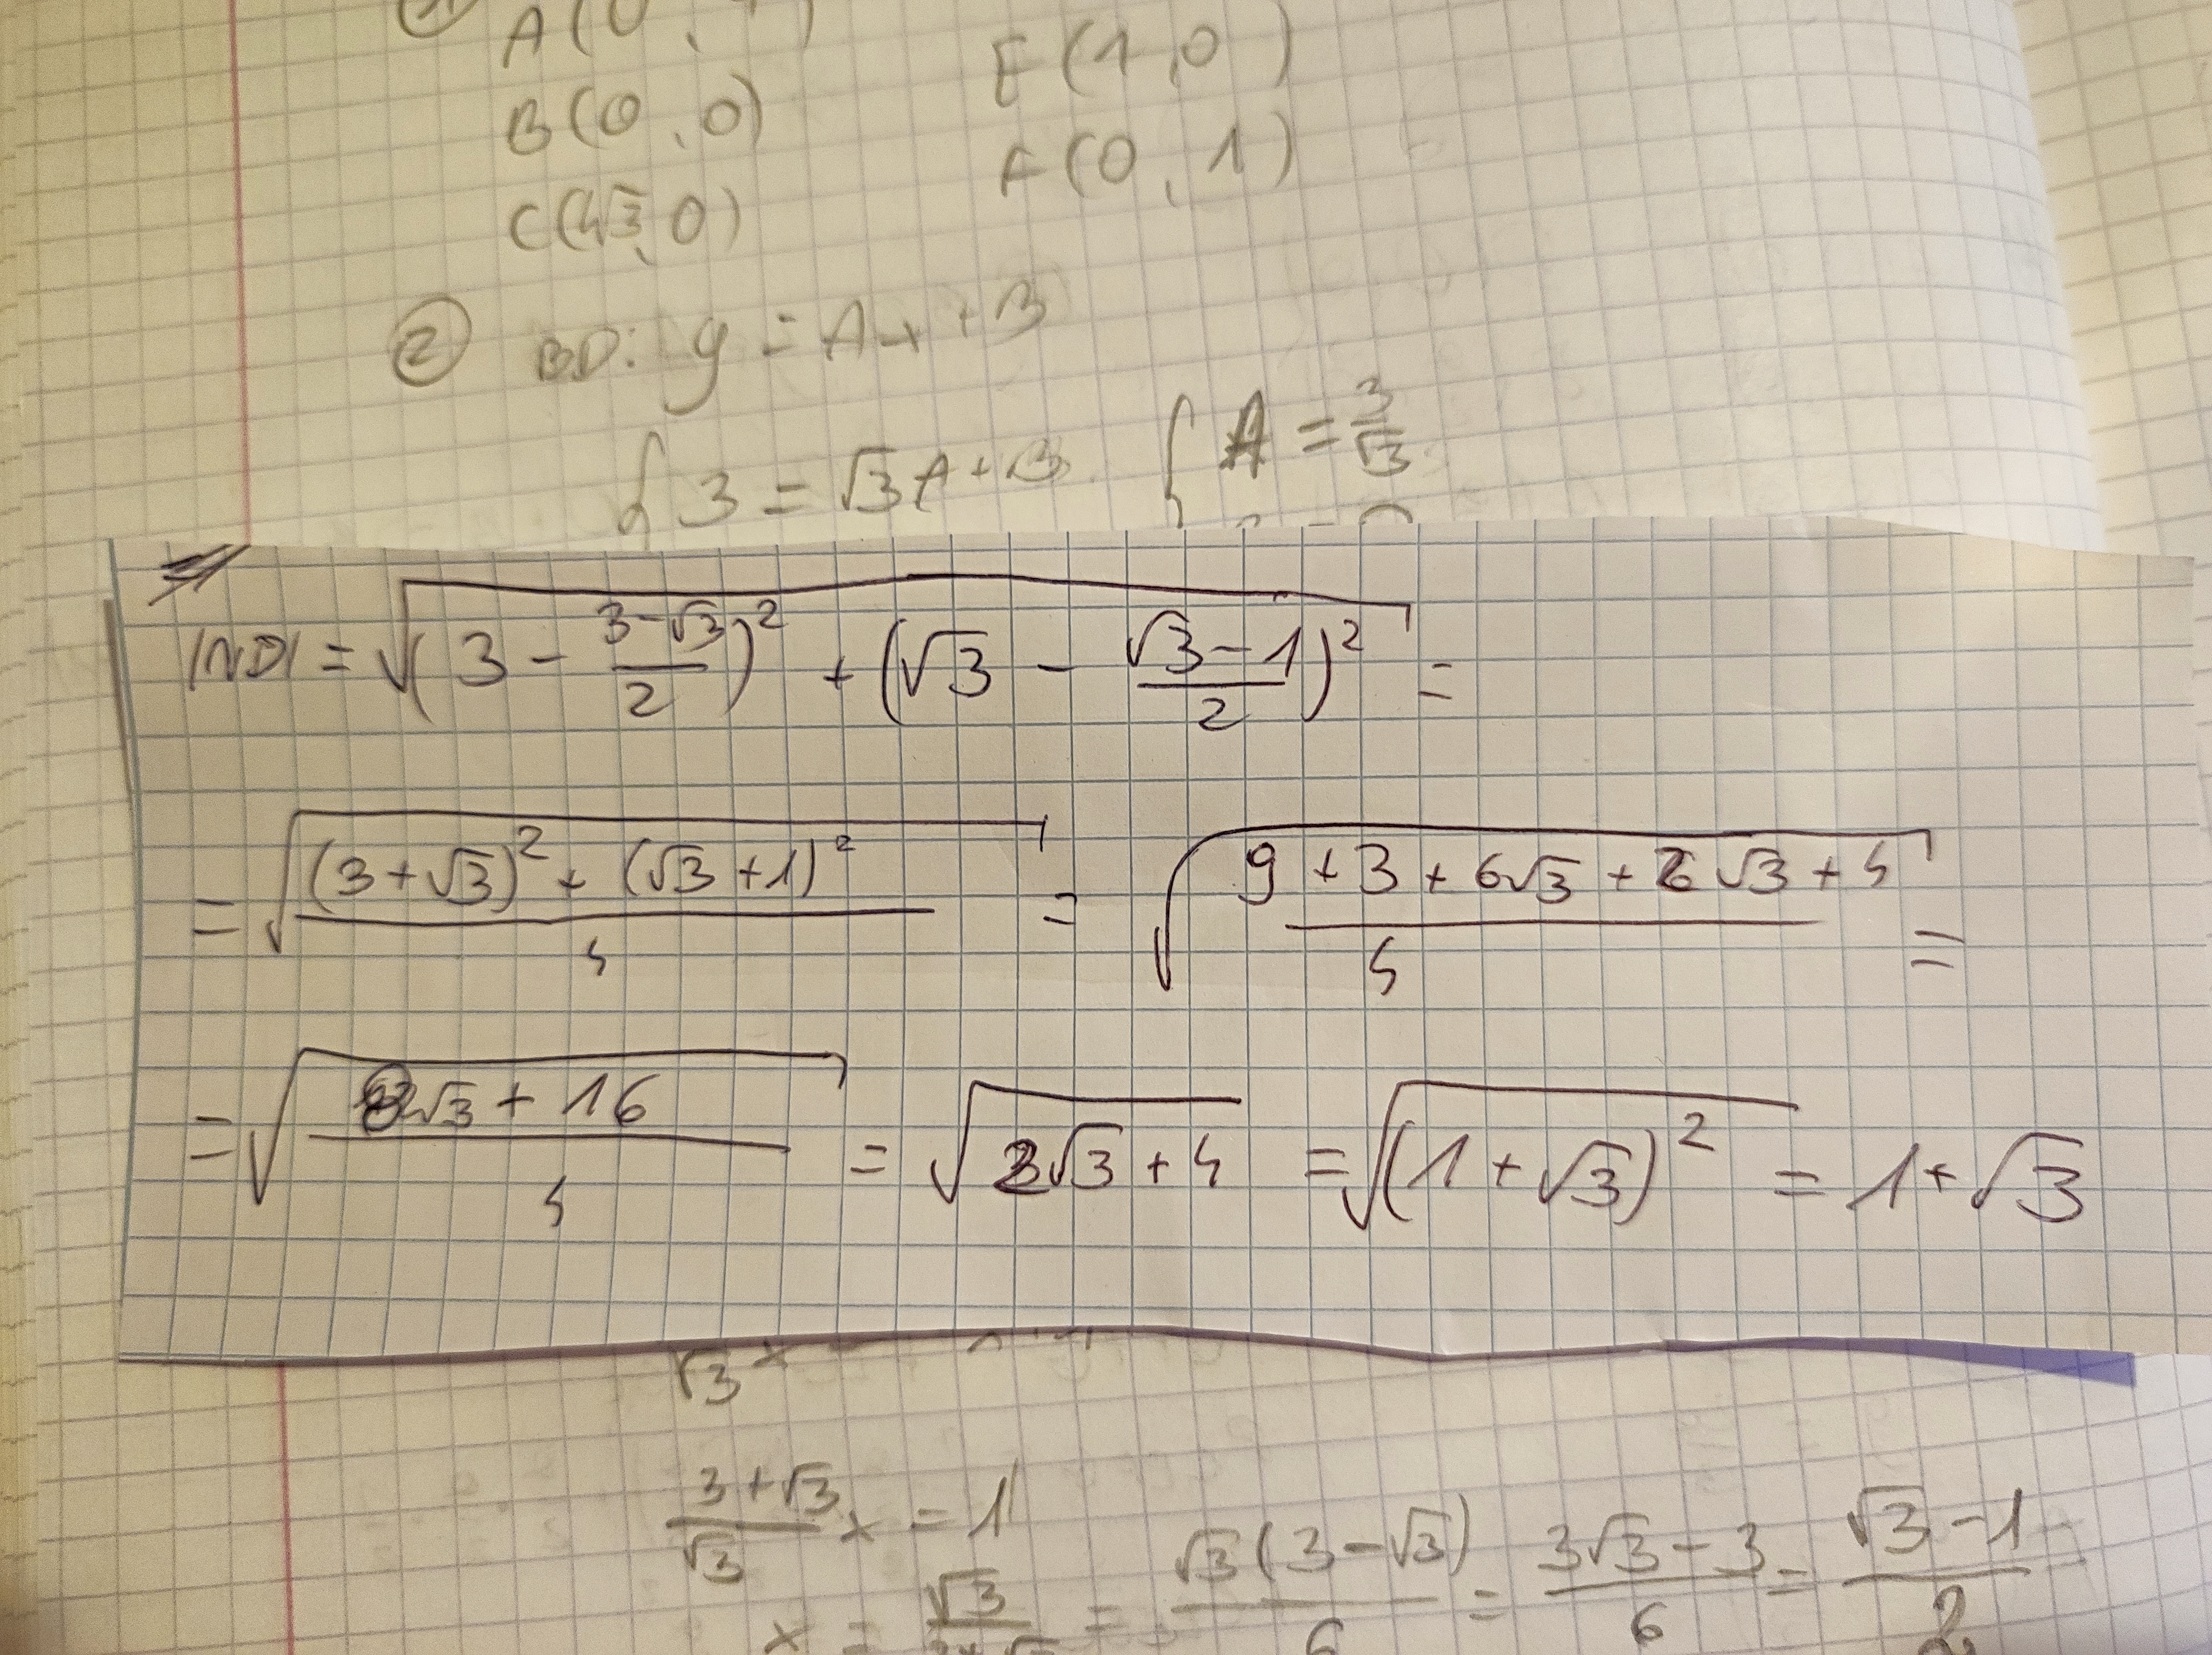 A(0,
E(1,0)
B(0,0)
F(0,1)
C(4√3,0)
② BD: y = Ax + B
{ 3 = √3A + B { A = 3/√3
|ND| = √((3 - (3-√3)/2)² + (√3 - (√3-1)/2)²) =
= √(((3+√3)² + (√3+1)²)/4) = √((9+3+6√3+2√3+4)/4) =
= √((8√3+16)/4) = √(2√3+4) = √((1+√3)²) = 1+√3
√3
(3+√3)/√3 x = 1
x = √3 = √3(3-√3)/6 = (3√3-3)/6 = (√3-1)/2